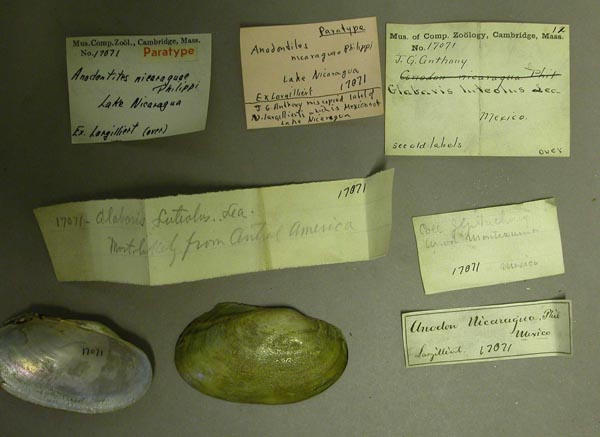 Mus. Comp. Zoöl., Cambridge, Mass.
No. 17071 Paratype
Anodontites nicaraguae
Philippi
Lake Nicaragua
Ex. Largilliert (over)
Paratype
Anodontites
nicaraguae Philippi
Lake Nicaragua
Ex Largilliert 17071
J. G. Anthony miscopied label of
Largilliert's which is Mexico not
Lake Nicaragua
12
Mus. of Comp. Zoölogy, Cambridge, Mass.
No. 17071
J. G. Anthony
Conodon nicaragua Phil
Glabaris luteolus Lea
Mexico.
see old labels
over
17071
17071 - Glabaris luteolus. Lea.
Most likely from Central America
Coll.
17071 Mexico
Anodon Nicaragua, Phil
Mexico
Largilliert. 17071
17071